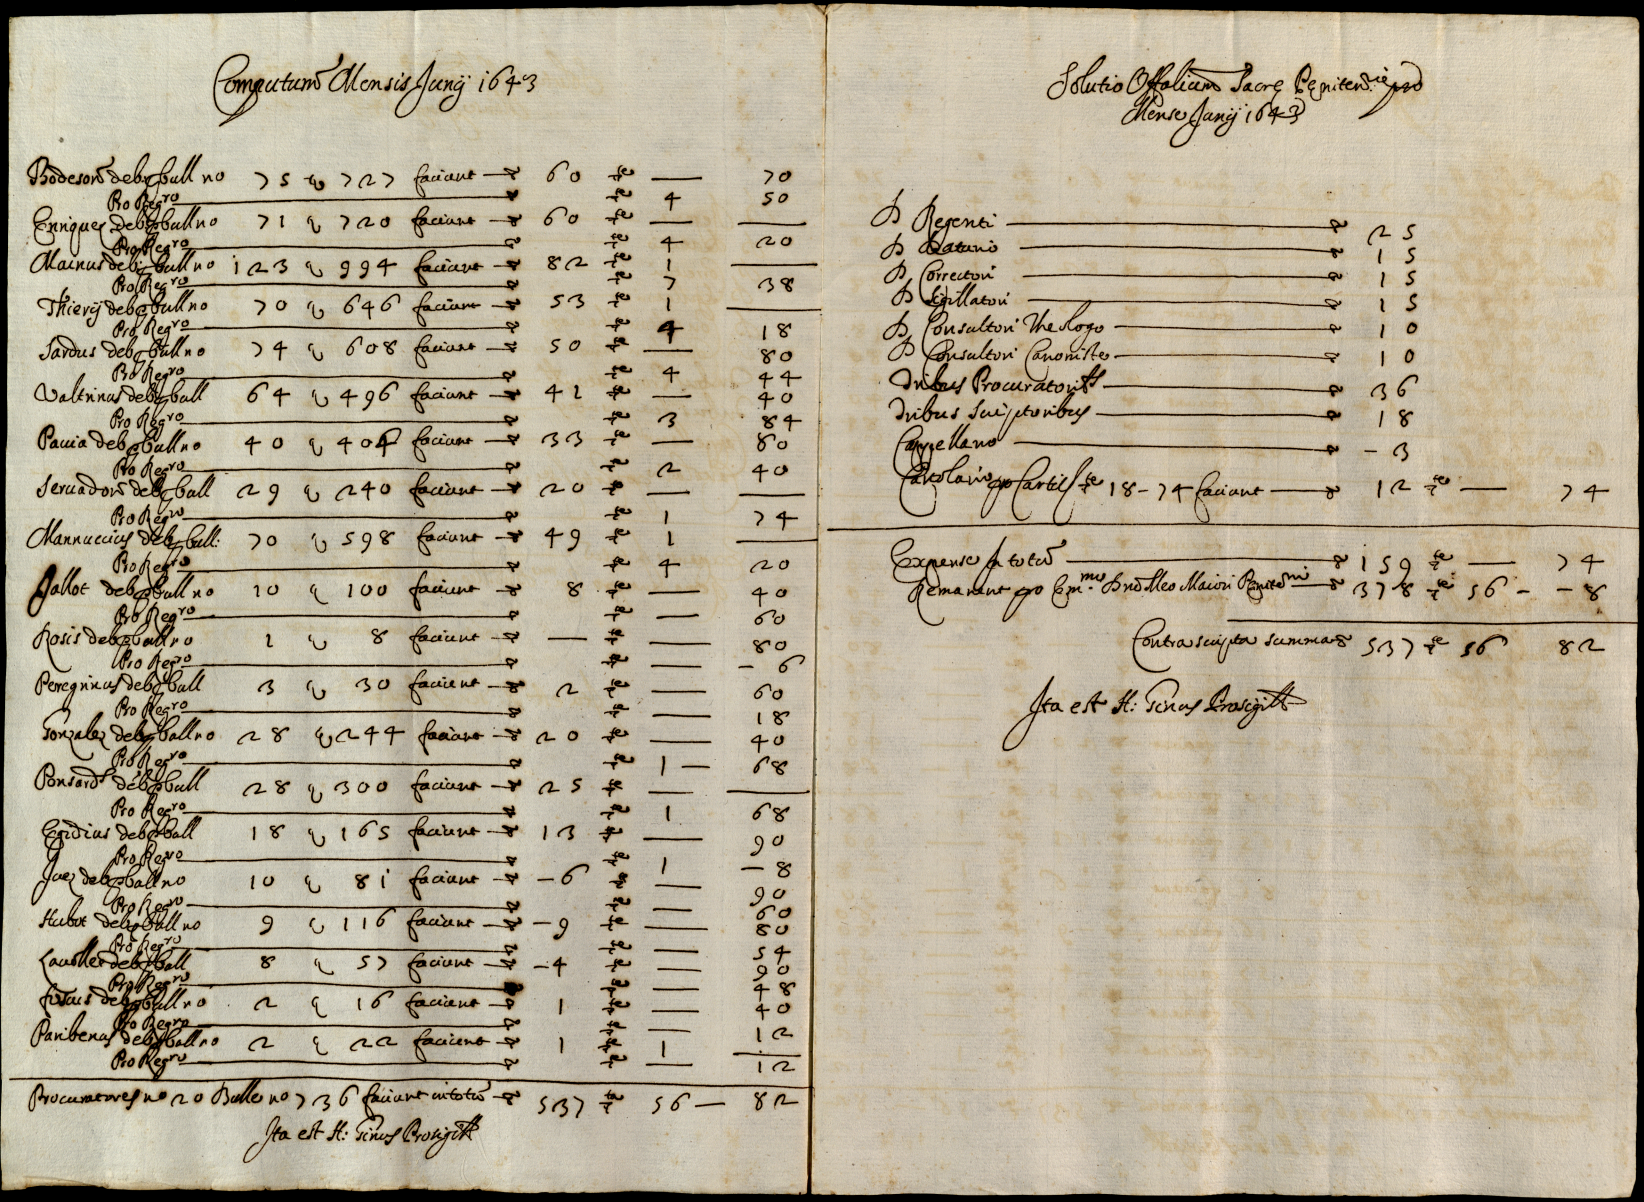 Computum Mensis Junij 1643
Bodeson deb. p bull no 75 & 727 faciunt 60 — 70
Pro Regro 4 50
Enriquez deb. p bull no 71 & 720 faciunt 60 — —
Pro Regro 4 20
Mainus deb. p bull no 123 & 994 faciunt 82 1 —
Pro Regro 7 38
Thierij deb. p bull no 70 & 646 faciunt 53 1 —
Pro Regro 4 18
Sardus deb. p bull no 74 & 608 faciunt 50 — 80
Pro Regro 4 44
Valtrinus deb. p bull 64 & 496 faciunt 41 — 40
Pro Regro 3 84
Pauia deb. p bull no 40 & 404 faciunt 33 — 80
Pro Regro 2 40
Seruadon deb. p bull 29 & 240 faciunt 20 — —
Pro Regro 1 74
Mannuccius deb. p bull: 70 & 598 faciunt 49 1 —
Pro Regro 4 20
Jallot deb. p bull no 10 & 100 faciunt 8 — 40
Pro Regro — 60
Rosis deb. p bull no 1 & 8 faciunt — — 80
Pro Regro — – 6
Peregrinus deb. p bull 3 & 30 faciunt 2 — 60
Pro Regro — 18
Gonzalez deb. p bull no 28 & 244 faciunt 20 — 40
Pro Regro 1 — 68
Ponsard deb. p bull 28 & 300 faciunt 25 — —
Pro Regro 1 68
Egidius deb. p bull 18 & 165 faciunt 13 — 90
Pro Regro 1 – 8
Juez deb. p bull no 10 & 81 faciunt – 6 — 90
Pro Regro — 60
Hubot deb. p bull no 9 & 116 faciunt – 9 — 80
Pro Regro — 54
Lauollee deb. p bull 8 & 57 faciunt – 4 — 90
Pro Regro — 48
deb. p bull no 2 & 16 faciunt 1 — 40
Pro Regro — 12
Paribenus deb. p bull no 2 & 22 faciunt 1 1 —
Pro Regro — 12
Procuratores no 20 Bulle no 736 faciunt in totū 537 56 — 82
Ita est H: Ginus Prosigill
Solutio Offialium Sacre Peniten.rie pro
Mense Junij 1643
D Regenti 25
D Datario 15
D Correctori 15
D Sigillatori 15
D Consultori Theologo 10
D Consultori Canoniste 10
Dribus Procuratorib 36
Dribus Scriptoribus 18
Cappellano – 3
Cartolario pro Cartis 18–74 faciunt 12 — 74
Expense in totū 159 — 74
Remanent pro Em.mo Dno Meo Maiori Penitenrio 378 56 – – 8
Contrascripta summa 537 56 82
Ita est H: Ginus Prosigill